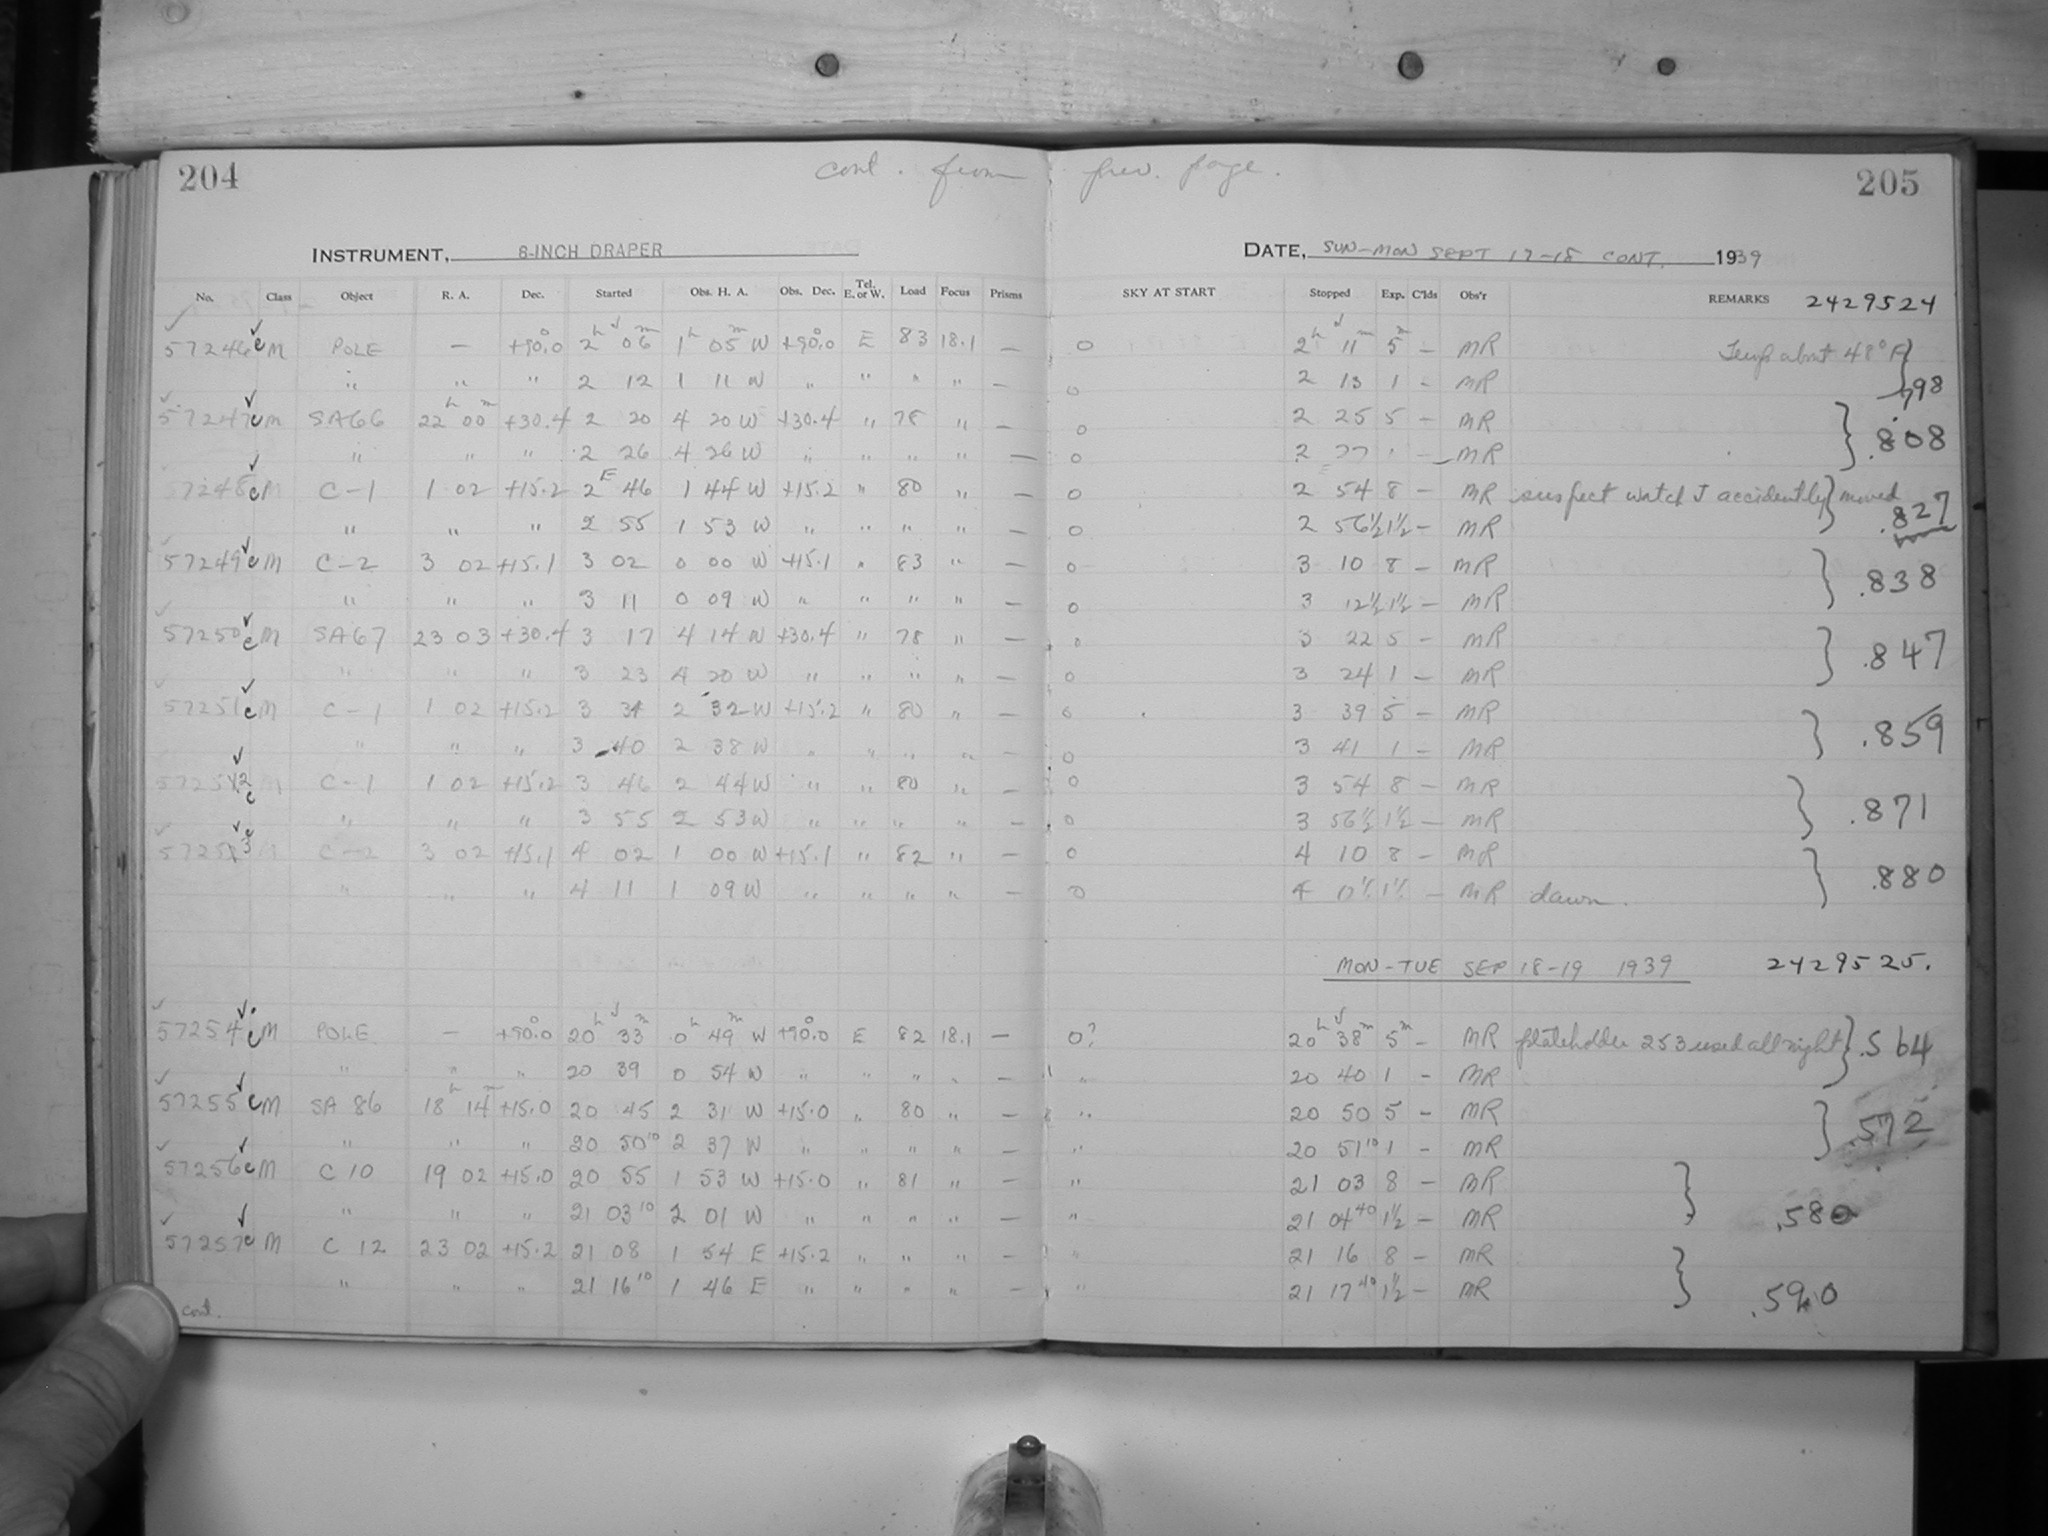 204 cont. from prev. page. 205
INSTRUMENT, 8-INCH DRAPER DATE, SUN-MON SEPT 17-18 CONT. 1939
No. Class Object R. A. Dec. Started Obs. H. A. Obs. Dec. Tel. E. or W. Load Focus Prisms SKY AT START Stopped Exp. C'lds Obs'r REMARKS 2429524
57246 c M POLE — +90.0 2h 06m 1h 05m W +90.0 E 83 18.1 — 0 2h 11m 5m — MR Temp about 48° F } .798
" " " 2 12 1 11 W " " " " — 0 2 13 1 - MR
57247 c M SA66 22h 00m +30.4 2 20 4 20 W +30.4 " 78 " — 0 2 25 5 - MR } .808
" " " 2 26 4 26 W " " " " — 0 2 27 1 — MR
57248 c M C-1 1 02 +15.2 2 46 1 44 W +15.2 " 80 " — 0 2 54 8 - MR suspect watch I accidently moved } .827
" " " 2 55 1 53 W " " " " — 0 2 56½ 1½ — MR
57249 c M C-2 3 02 +15.1 3 02 0 00 W +15.1 " 83 " — 0 3 10 8 — MR } .838
" " " 3 11 0 09 W " " " " — 0 3 12½ 1½ — MR
57250 c M SA67 23 03 +30.4 3 17 4 14 W +30.4 " 78 " — 0 3 22 5 — MR } .847
" " " 3 23 4 20 W " " " " — 0 3 24 1 — MR
57251 c M C-1 1 02 +15.2 3 34 2 32 W +15.2 " 80 " — 0 3 39 5 — MR } .859
" " " 3 40 2 38 W " " " " — 0 3 41 1 — MR
57252 c M C-1 1 02 +15.2 3 46 2 44 W " " 80 " — 0 3 54 8 — MR } .871
" " " 3 55 2 53 W " " " " — 0 3 56½ 1½ — MR
57253 c M C-2 3 02 +15.1 4 02 1 00 W +15.1 " 82 " — 0 4 10 8 — MR } .880
" " " 4 11 1 09 W " " " " — 0 4 1½ — MR dawn.
MON-TUE SEP 18-19 1939 2429525.
57254 c M POLE — +90.0 20h 33m 0h 49m W +90.0 E 82 18.1 — 0? 20h 38m 5m - MR plateholder 253 used all night } .564
" " " 20 39 0 54 W " " " " — " 20 40 1 - MR
57255 c M SA 86 18h 14m +15.0 20 45 2 31 W +15.0 " 80 " — " 20 50 5 - MR } .572
" " " 20 50 10 2 37 W " " " " — " 20 51 10 1 - MR
57256 c M C 10 19 02 +15.0 20 55 1 53 W +15.0 " 81 " — " 21 03 8 - MR } .580
" " " 21 03 10 2 01 W " " " " — " 21 04 40 1½ — MR
57257 c M C 12 23 02 +15.2 21 08 1 54 E +15.2 " " " — " 21 16 8 — MR } .590
" " " 21 16 10 1 46 E " " " " — " 21 17 40 1½ — MR
cont.